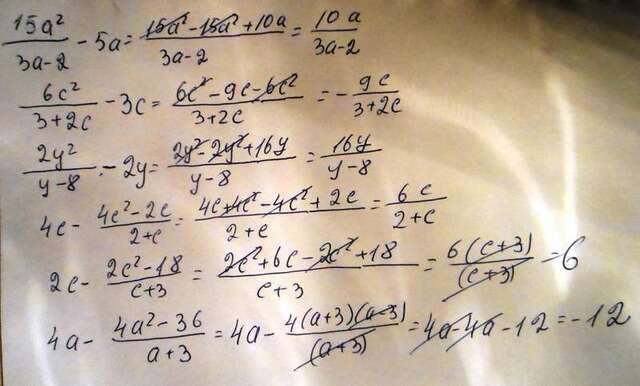 15a²/(3a-2) - 5a = (15a² - 15a² + 10a)/(3a-2) = 10a/(3a-2)
6c²/(3+2c) - 3c = (6c² - 9c - 6c²)/(3+2c) = - 9c/(3+2c)
2y²/(y-8) - 2y = (2y² - 2y² + 16y)/(y-8) = 16y/(y-8)
4c - (4c² - 2c)/(2+c) = (4c + 4c² - 4c² + 2c)/(2+c) = 6c/(2+c)
2c - (2c² - 18)/(c+3) = (2c² + 6c - 2c² + 18)/(c+3) = 6(c+3)/(c+3) = 6
4a - (4a² - 36)/(a+3) = 4a - 4(a+3)(a-3)/(a+3) = 4a - 4a - 12 = -12